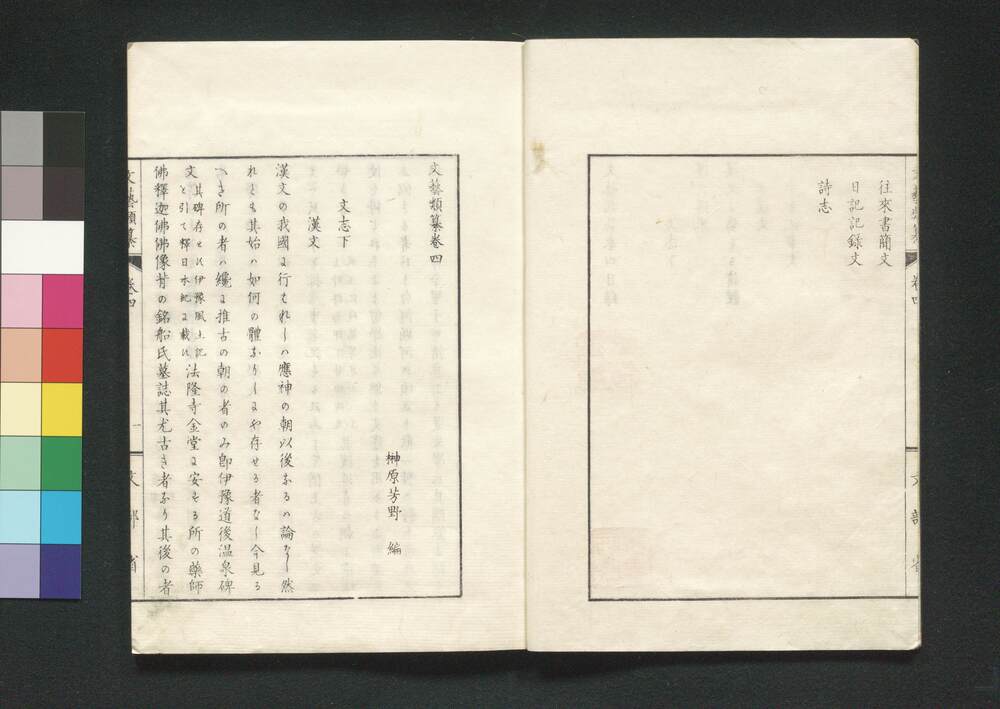 往來書簡文
日記記録文
詩志
文藝類纂 卷四 文部省
文藝類纂卷四
榊原芳野 編
文志下
漢文
漢文の我國に行はれしハ應神の朝以後なるハ論なし然
れとも其始ハ如何の體なりしにや存せる者なし今見る
へき所の者ハ纔に推古の朝の者のみ卽伊豫道後温泉碑
其碑存せす伊豫風土記
文と引て釋日本紀に載す
法隆寺金堂に安する所の藥師
佛釋迦佛佛像背の銘船氏墓誌其尤古き者なり其後の者
文藝類纂 卷四 一 文部省